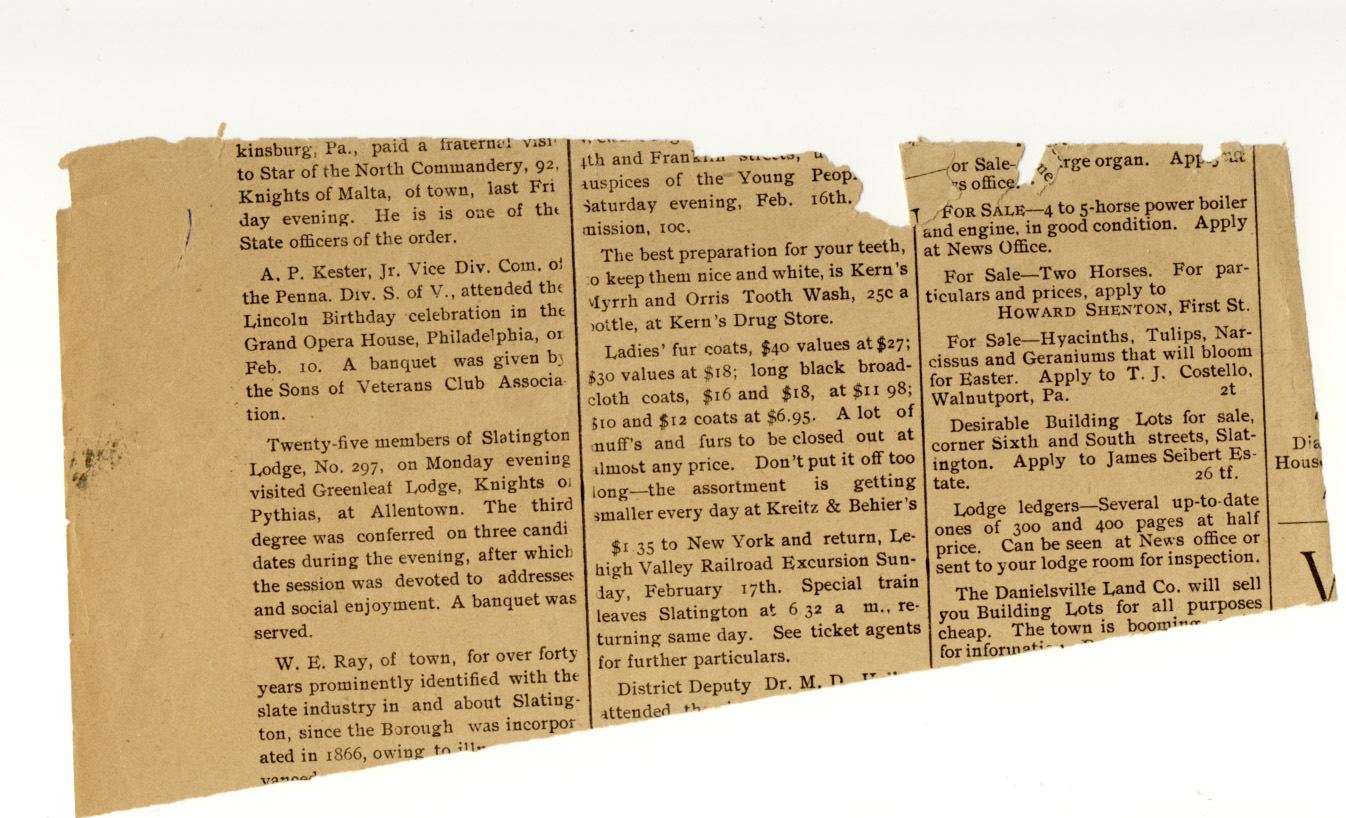 kinsburg, Pa., paid a fraternal
to Star of the North Commandery, 92,
Knights of Malta, of town, last Fri
day evening. He is is one of the
State officers of the order.
A. P. Kester, Jr. Vice Div. Com. of
the Penna. Div. S. of V., attended the
Lincoln Birthday celebration in the
Grand Opera House, Philadelphia, on
Feb. 10. A banquet was given by
the Sons of Veterans Club Associa
tion.
Twenty-five members of Slatington
Lodge, No. 297, on Monday evening
visited Greenleaf Lodge, Knights of
Pythias, at Allentown. The third
degree was conferred on three candi
dates during the evening, after which
the session was devoted to addresses
and social enjoyment. A banquet was
served.
W. E. Ray, of town, for over forty
years prominently identified with the
slate industry in and about Slating-
ton, since the Borough was incorpor
ated in 1866, owing to
vanced
4th and Franklin streets,
auspices of the Young
Saturday evening, Feb. 16th.
mission, 10c.
The best preparation for your teeth,
to keep them nice and white, is Kern's
Myrrh and Orris Tooth Wash, 25c a
bottle, at Kern's Drug Store.
Ladies' fur coats, $40 values at $27;
$30 values at $18; long black broad-
cloth coats, $16 and $18, at $11 98;
$10 and $12 coats at $6.95. A lot of
muff's and furs to be closed out at
almost any price. Don't put it off too
long—the assortment is getting
smaller every day at Kreitz & Behier's
$1.35 to New York and return, Le-
high Valley Railroad Excursion Sun-
day, February 17th. Special train
leaves Slatington at 6 32 a m., re-
turning same day. See ticket agents
for further particulars.
District Deputy Dr. M. D.
attended
or Sale- rge organ. Apply at
s office. ne
FOR SALE—4 to 5-horse power boiler
and engine, in good condition. Apply
at News Office.
For Sale—Two Horses. For par-
ticulars and prices, apply to
HOWARD SHENTON, First St.
For Sale—Hyacinths, Tulips, Nar-
cissus and Geraniums that will bloom
for Easter. Apply to T. J. Costello,
Walnutport, Pa. 2t
Desirable Building Lots for sale,
corner Sixth and South streets, Slat-
ington. Apply to James Seibert Es-
tate. 26 tf.
Lodge ledgers—Several up-to-date
ones of 300 and 400 pages at half
price. Can be seen at News office or
sent to your lodge room for inspection.
The Danielsville Land Co. will sell
you Building Lots for all purposes
cheap. The town is booming
for
Dia
House